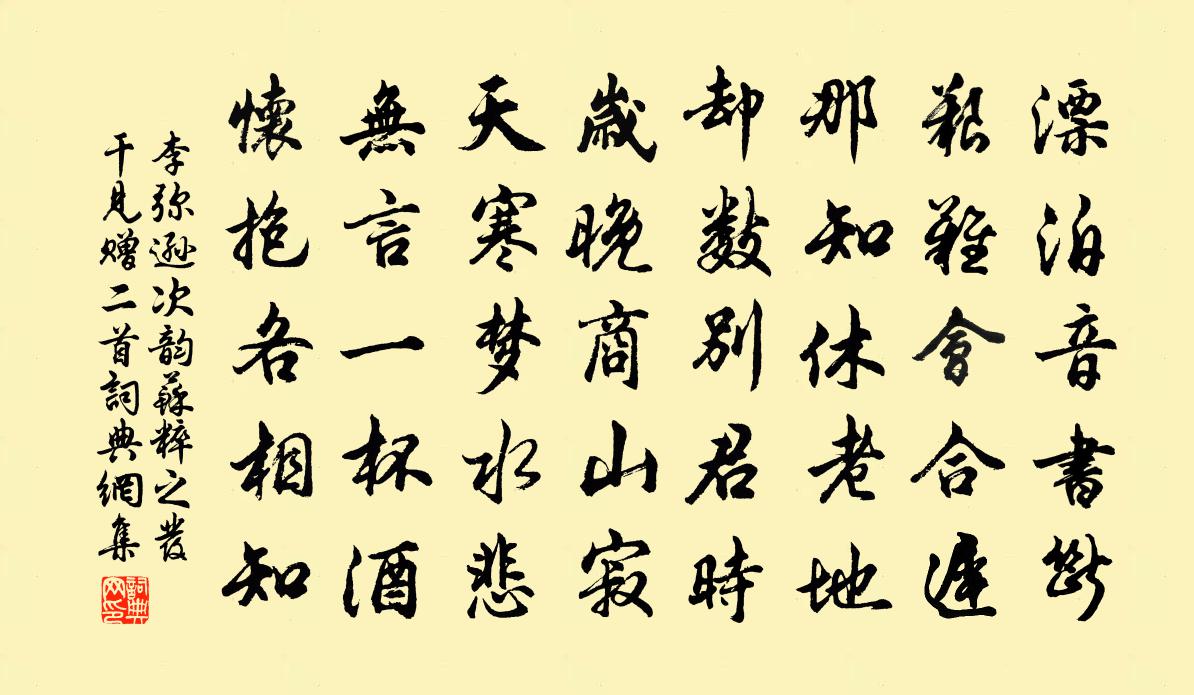 漂泊音書斷
艱難會合遲
那知休老地
却數別君時
歲晚商山寂
天寒梦水悲
無言一杯酒
懷抱各相知
李弥遜次韵蘇粹之發
干見贈二首詞典網集
詞典網印